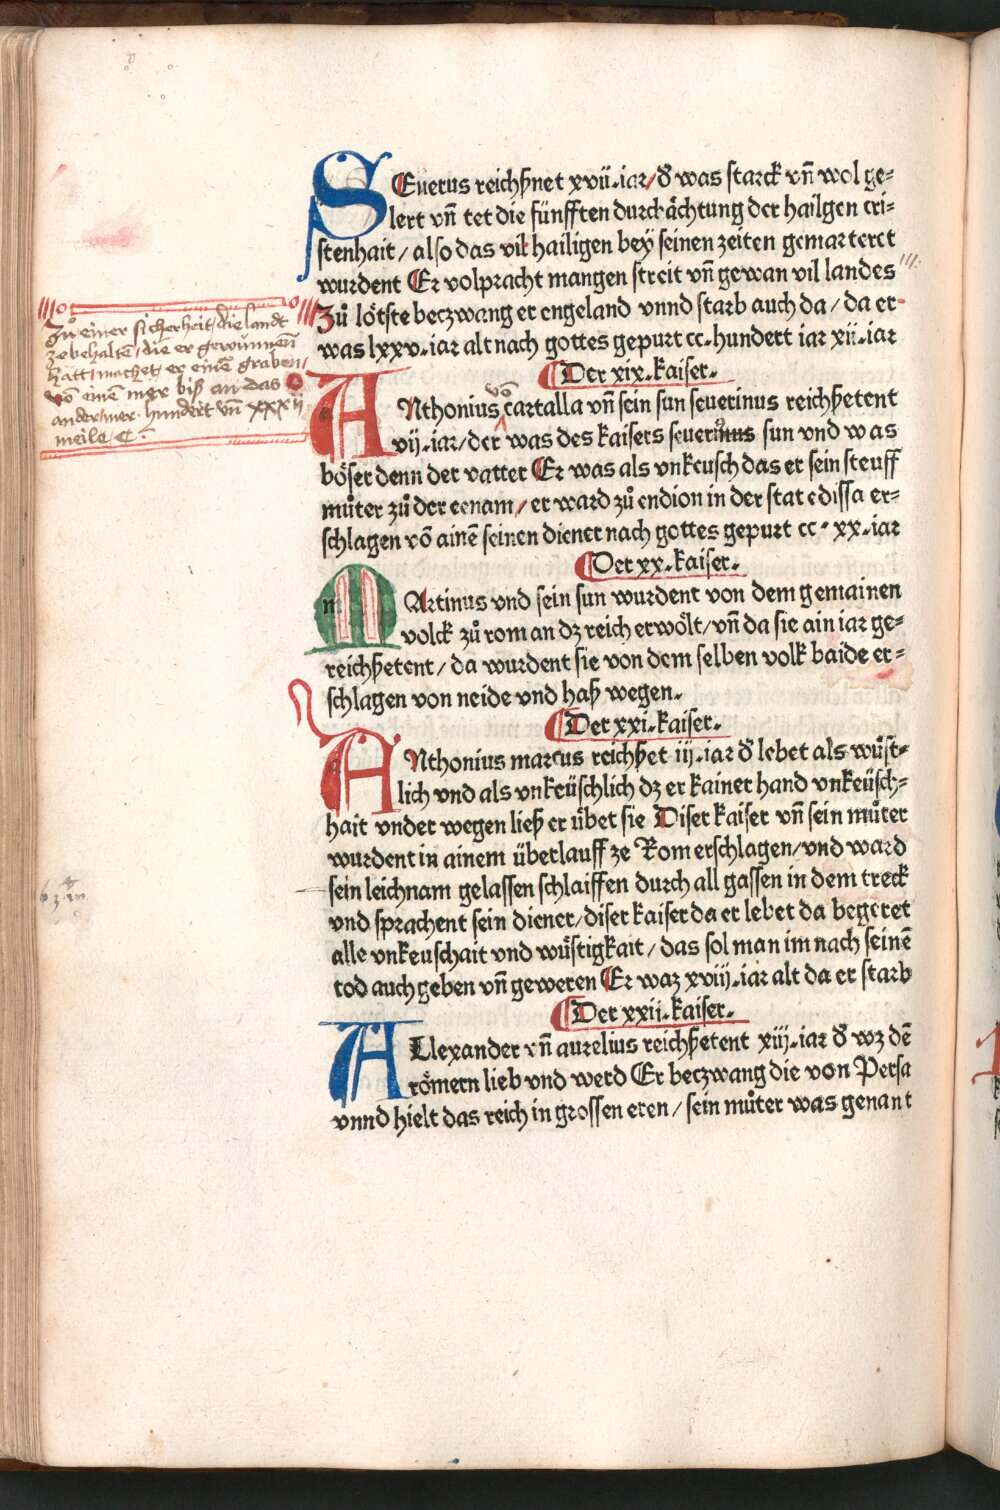 SEuerus reichßnet xvii·iar/ đ was starck vñ wol ge=
lert vñ tet die fünfften durchåchtung der hailgen cri=
stenhait/ also das vil hailigen bey seinen zeiten gemarteret
wurdent Er volpracht mangen streit vñ gewan vil landes
Zů lötste beczwang er engeland vnnd starb auch da/ da er
was lxxv·iar alt nach gottes gepurt cc·hundert iar xii·iar
Zů einer sicherheit, die landt
zebehaltē, die er gewūnnen
hatt, machet er einē graben,
vō einē mer biß an das
ander mer· hundert vñ xxxij
meile C·
Der xix·kaiser·
vō
ANthonius cartalla vñ sein sun seuerinus reichßetent
vij·iar/ der was des kaisers seuerinus sun vnd was
böser denn der vatter Er was als vnkeusch das er sein steuff
můter zů der eenam/ er ward zů endion in der stat edissa er=
schlagen vō ainē seinen diener nach gottes gepurt cc·xx·iar
Der xx·kaiser·
MArtinus vnd sein sun wurdent von dem gemainen
volck zů rom an dz reich erwölt/ vñ da sie ain iar ge=
reichßetent/ da wurdent sie von dem selben volk baide er=
schlagen von neide vnd haß wegen·
Der xxi·kaiser·
ANthonius marcus reichßet iij·iar đ lebet als wůst=
lich vnd als vnkeüschlich dz er kainer hand vnkeüsch=
hait vnder wegen ließ er übet sie Diser kaiser vñ sein můter
wurdent in ainem überlauff ze Rom erschlagen/ vnd ward
sein leichnam gelassen schlaiffen durch all gassen in dem treck
vnd sprachent sein diener/ diser kaiser da er lebet da begeret
alle vnkeuschait vnd wůstigkait/ das sol man im nach seinē
tod auch geben vñ geweren Er waz xviij·iar alt da er starb
Der xxii·kaiser·
ALlexander vñ aurelius reichßetent xiij·iar đ wz dē
römern lieb vnd werd Er beczwang die von Persa
vnnd hielt das reich in grossen eren/ sein můter was genant